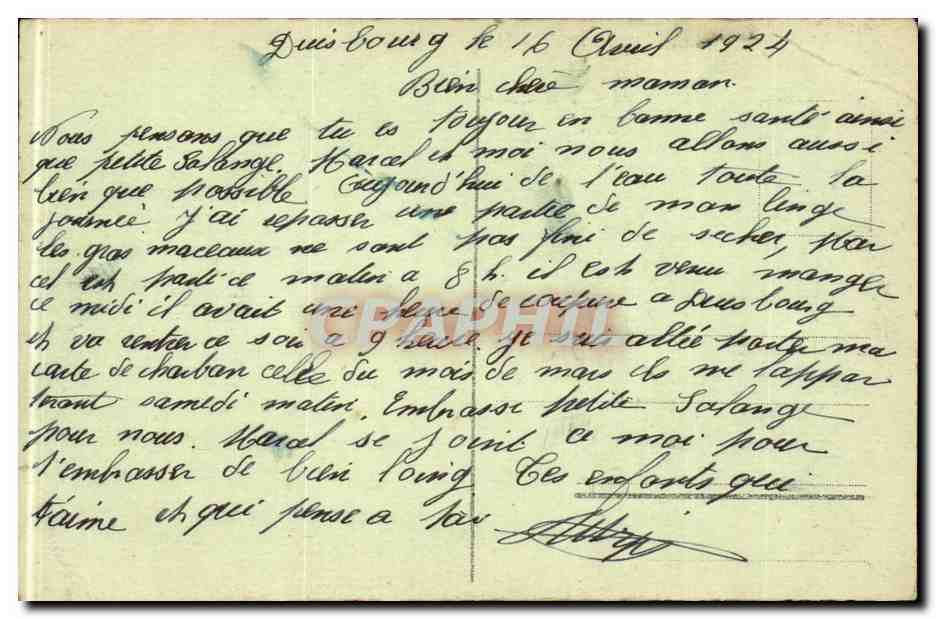 Duisbourg le 16 Avril 1924
Bien chère maman.
Nous pensons que tu es toujour en bonne santé ainsi
que petite Solange. Marcel et moi nous allons aussi
bien que possible Aujourd'hui de l'eau toute la
journée. J'ai repasser une partie de mon linge
les gros morceaux ne sont pas fini de secher, Mar
cel est partie ce matin a 8 h. il est venu manger
ce midi il avait une heure de coupure a Duisbourg
et va rentrer ce soir a 9 heure. je suis allée porter ma
carte de charbon celle du mois de mars ils me l'appor
teront samedi matin. Embrasse petite Solange
pour nous. Marcel se joint a moi pour
t'embrasser de bien loing Tes enfants qui
t'aime et qui pense a toi
CPAPHIL